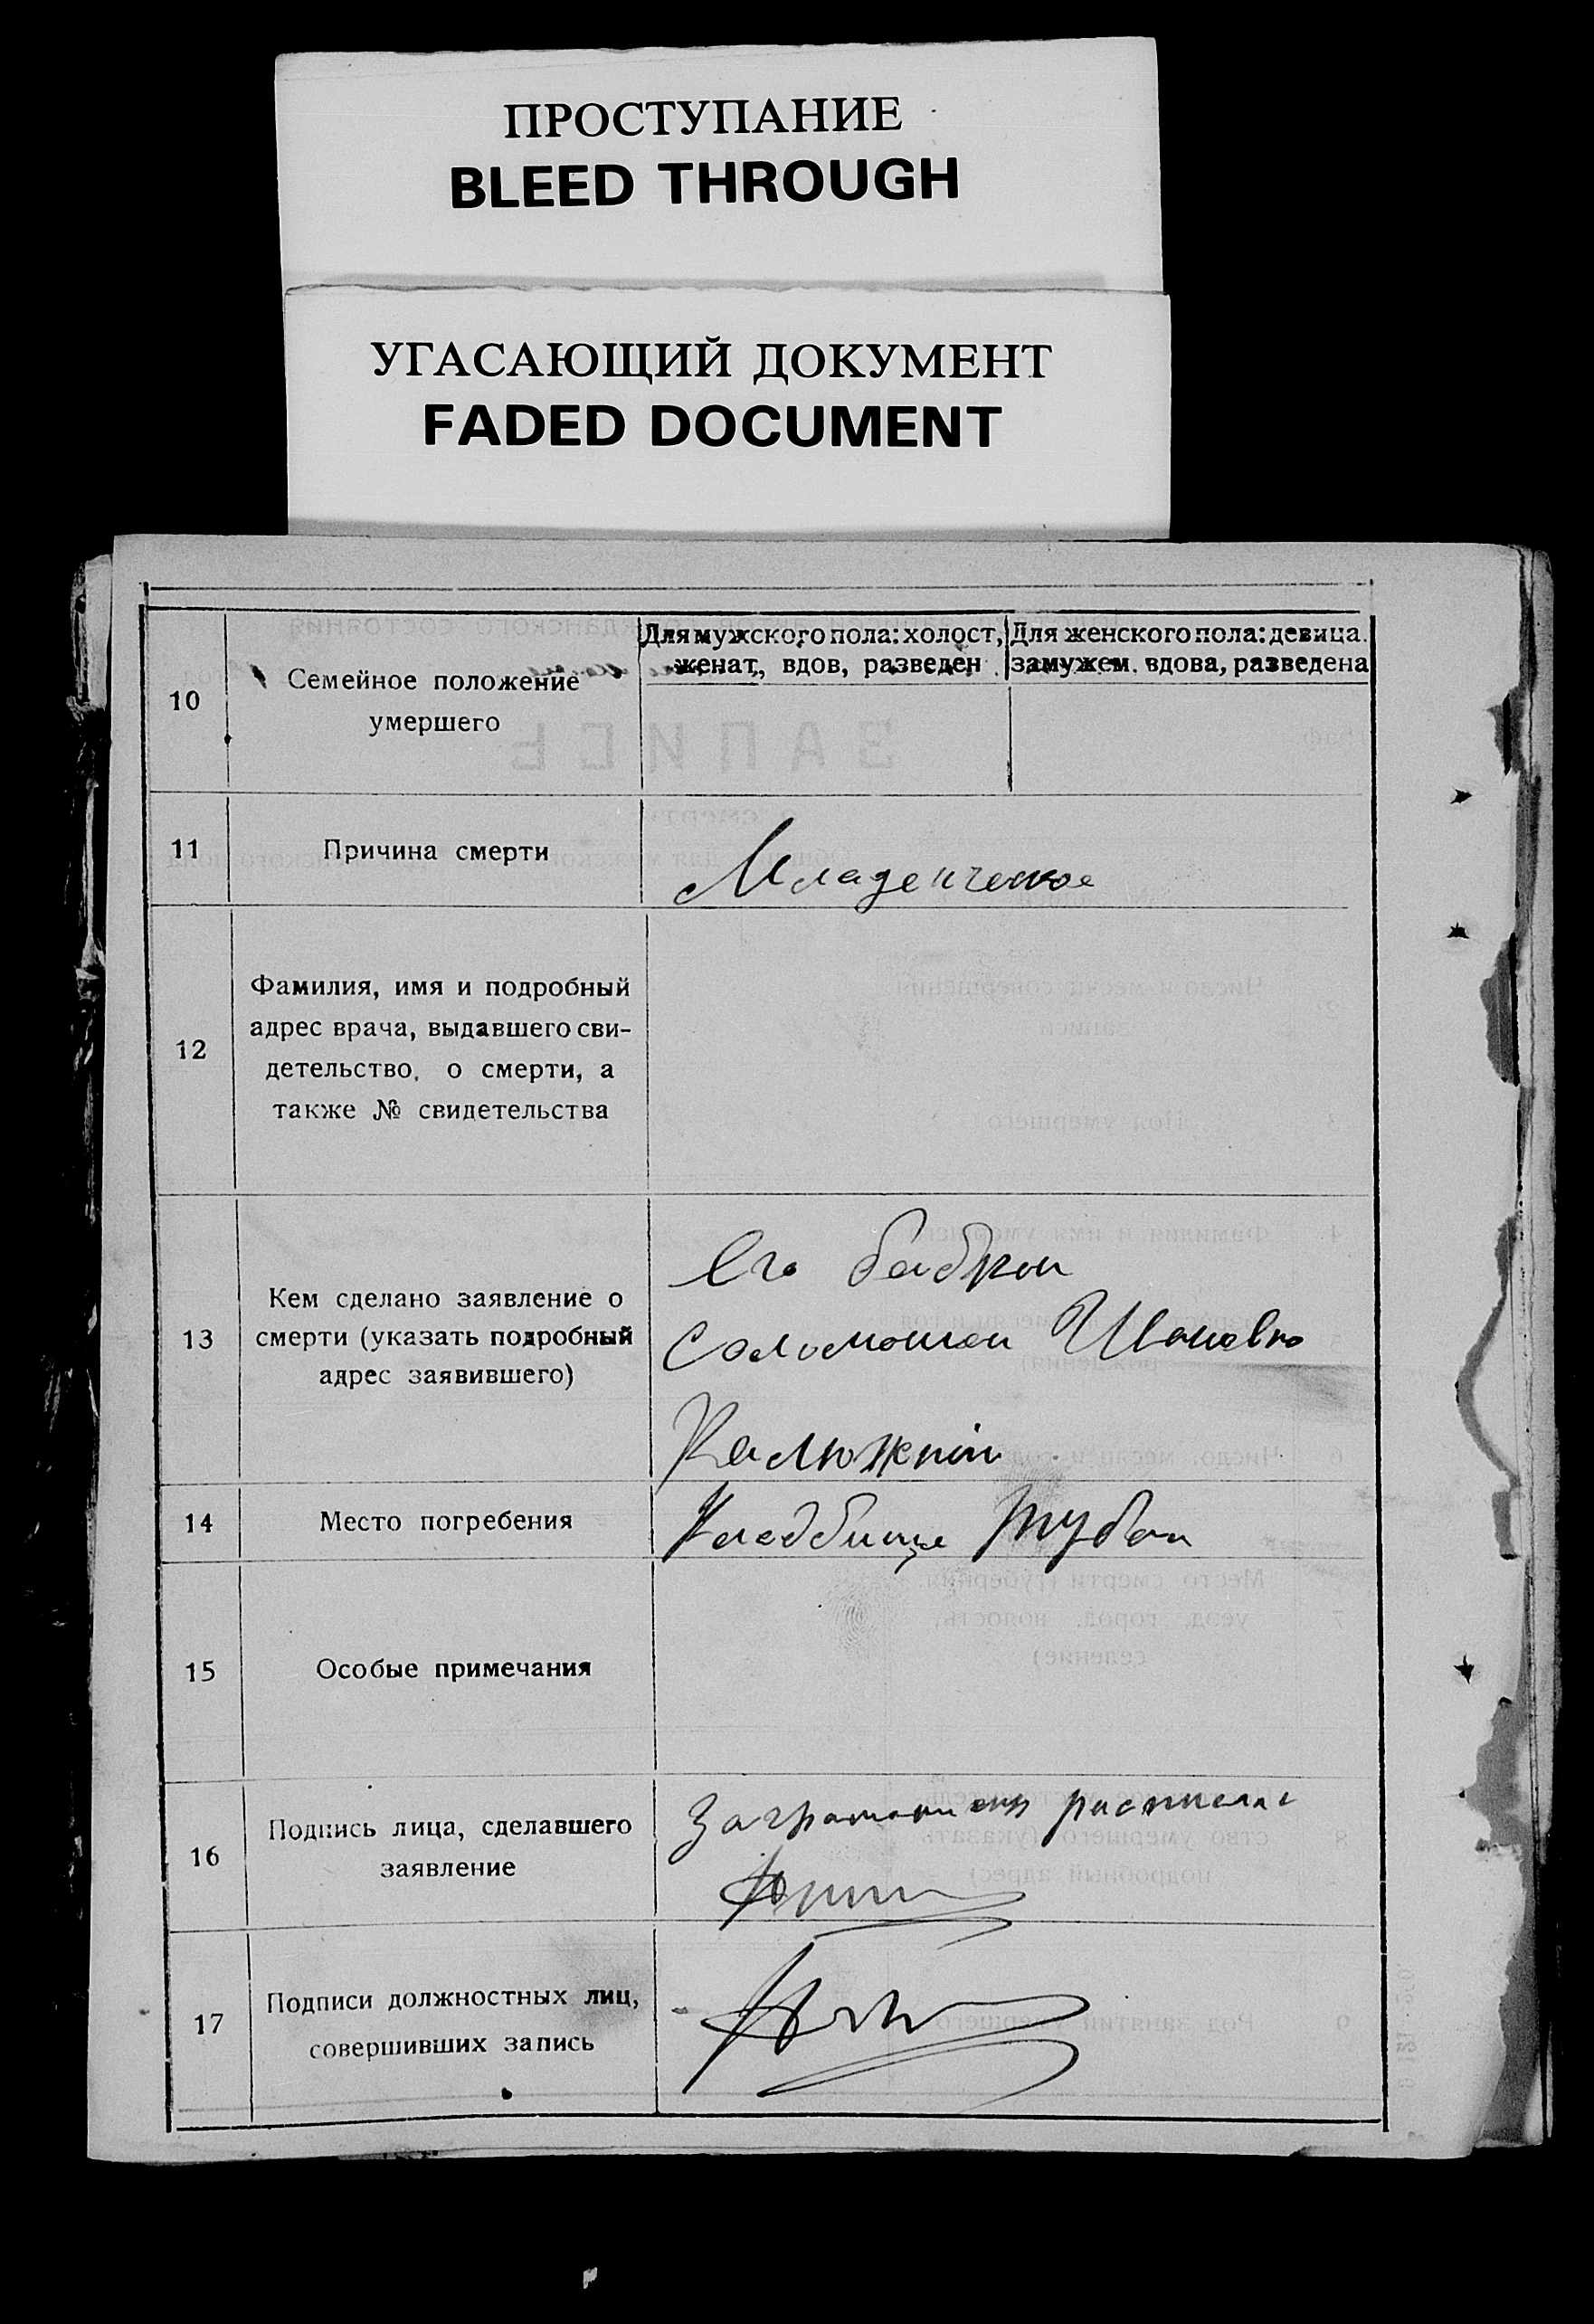 ПРОСТУПАНИЕ
BLEED THROUGH
УГАСАЮЩИЙ ДОКУМЕНТ
FADED DOCUMENT
10
Семейное положение
умершего
Для мужского пола: холост,
женат, вдов, разведен
Для женского пола: девица.
замужем. вдова, разведена
11
Причина смерти
Младенческое
12
Фамилия, имя и подробный
адрес врача, выдавшего сви-
детельство, о смерти, а
также № свидетельства
13
Кем сделано заявление о
смерти (указать подробный
адрес заявившего)
Его бабкой
Соломонией Ивановно
Калюжній
14
Место погребения
Кладбище
15
Особые примечания
16
Подпись лица, сделавшего
заявление
17
Подписи должностных лиц,
совершивших запись